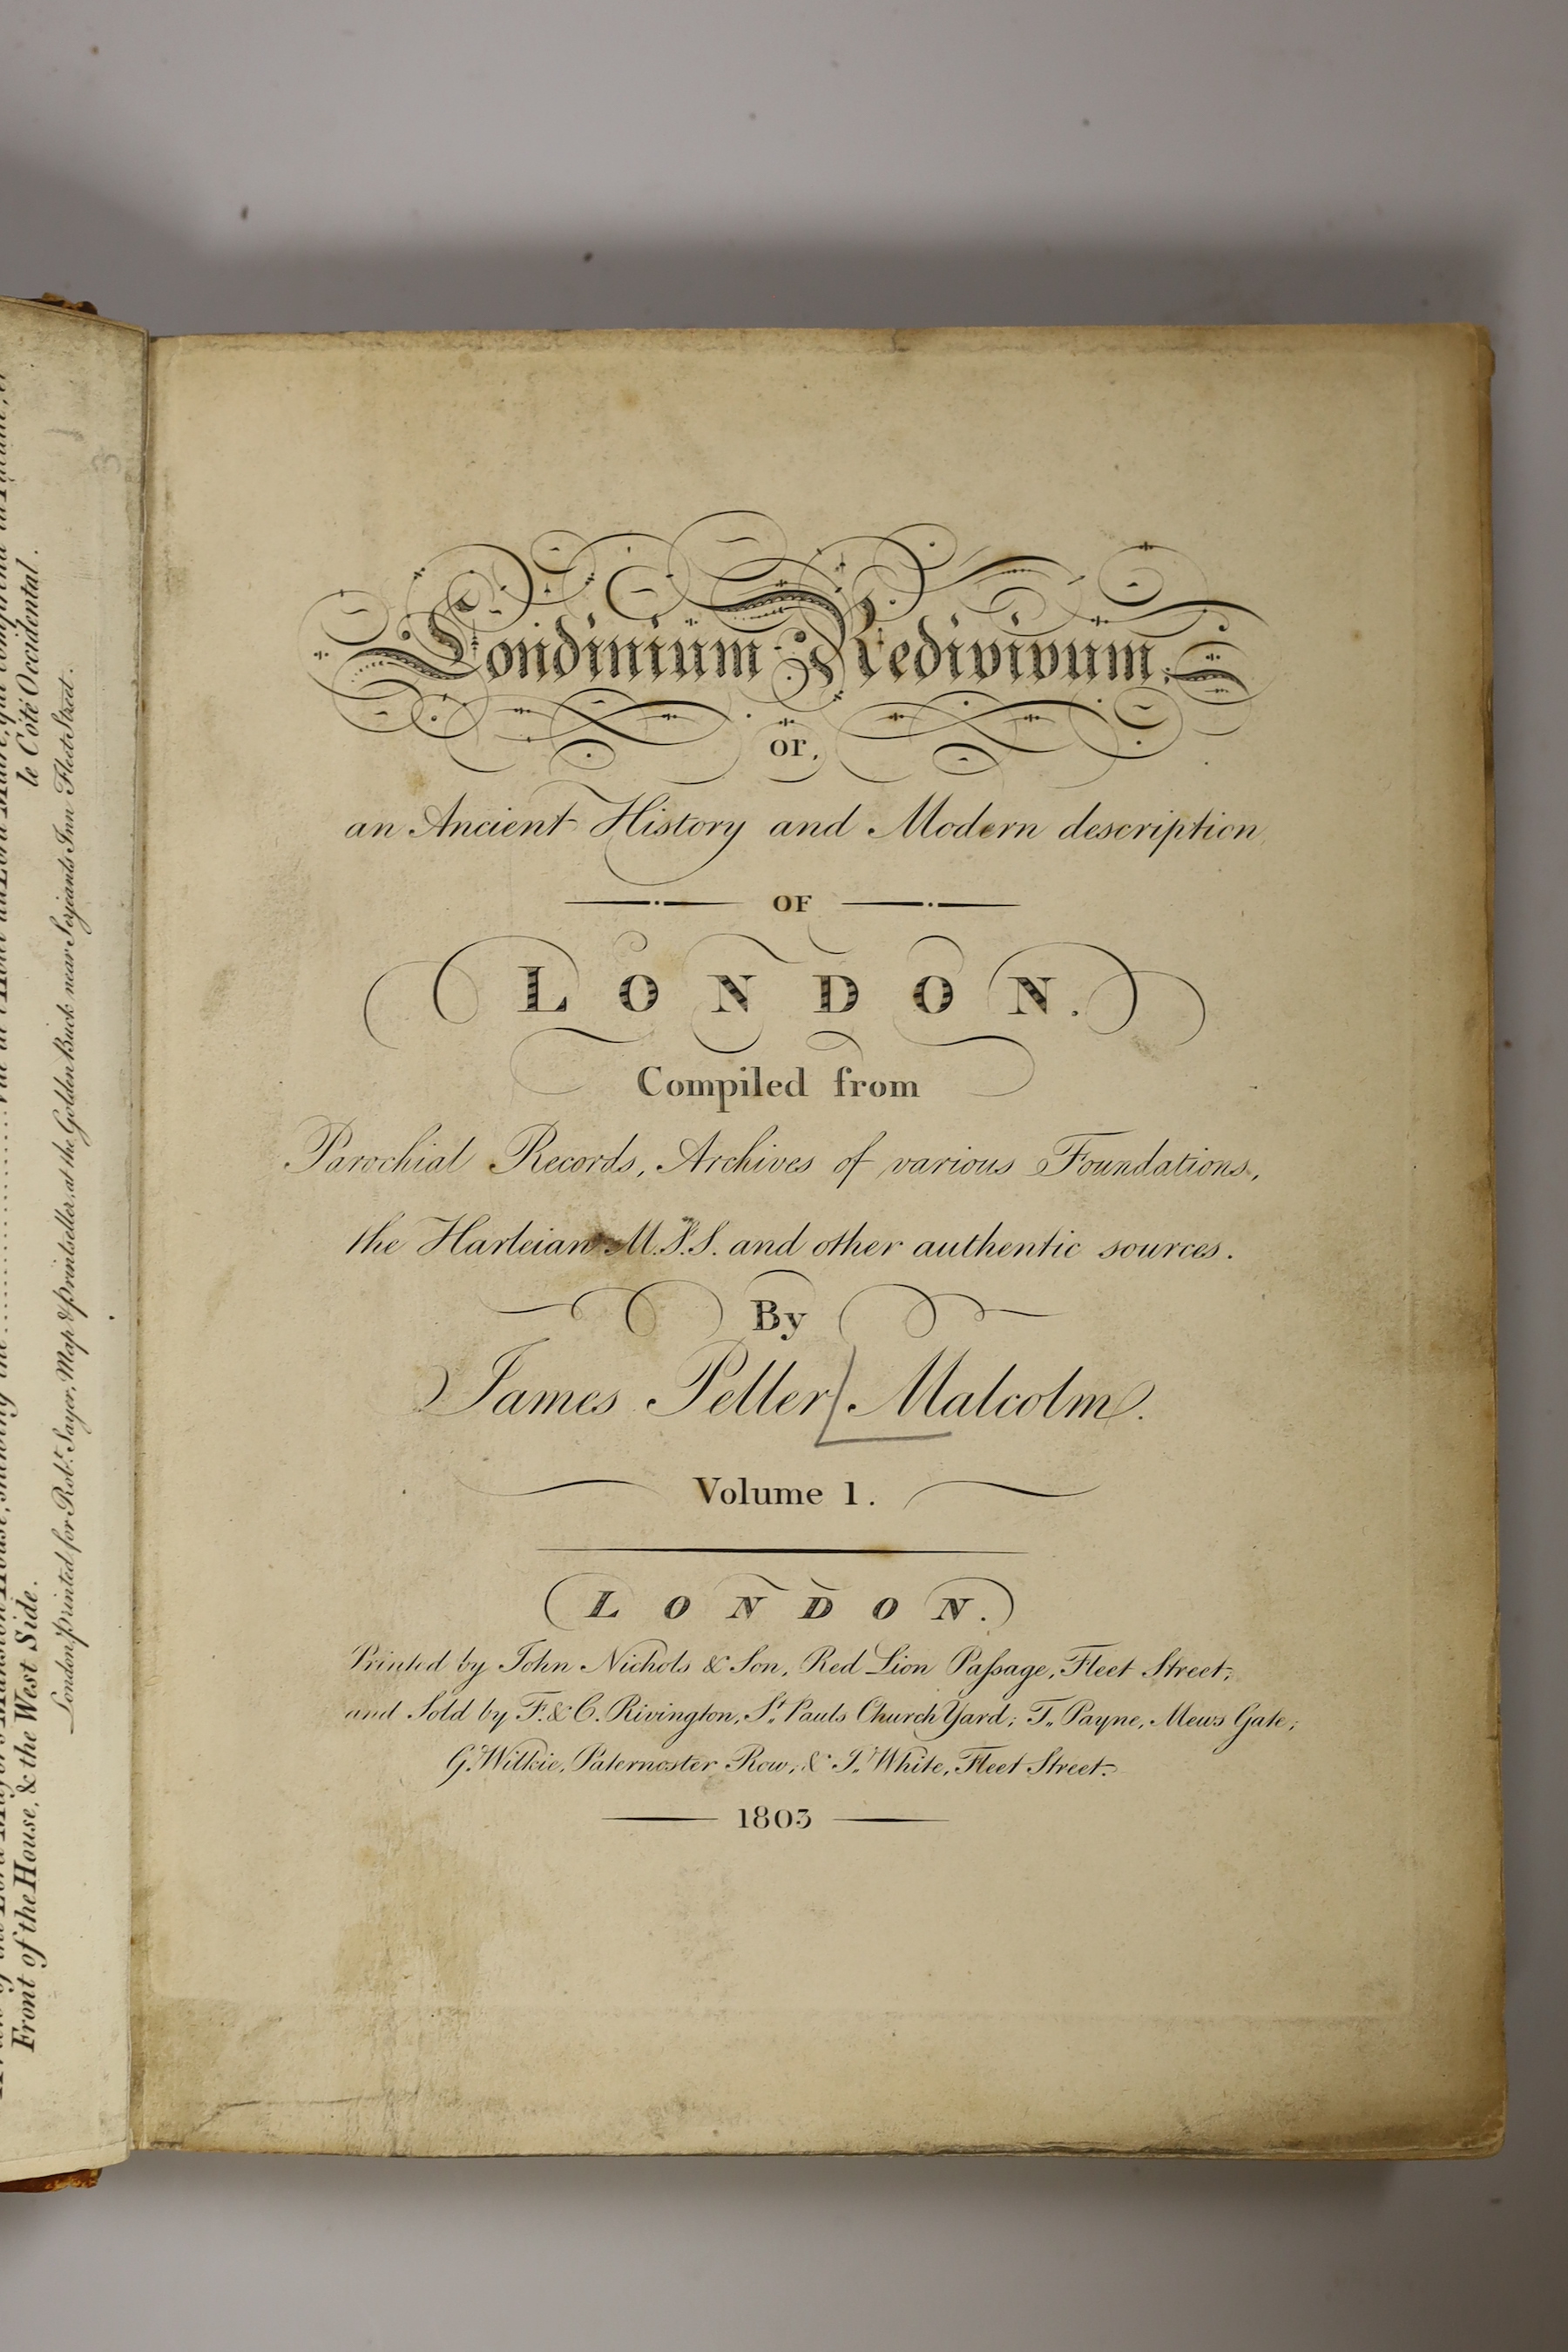 Londinium Redivivum;
or,
an Ancient History and Modern description
OF
LONDON.
Compiled from
Parochial Records, Archives of various Foundations,
the Harleian M.S.S. and other authentic sources.
By
James Peller Malcolm.
Volume 1.
LONDON.
Printed by John Nichols & Son, Red Lion Paſsage, Fleet Street;
and Sold by F. & C. Rivington, St. Pauls Church Yard; T. Payne, Mews Gate;
G. Wilkie, Paternoster Row, & J. White, Fleet Street.
1803
le Côté Occidental.
Front of the House, & the West Side.
London, Printed for Robt. Sayer, Map & Printseller, at the Golden Buck near Serjeants Inn Fleet Street.
3